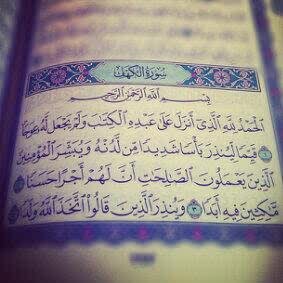 سُورَةُ الكَهْفِ
بِسْمِ اللَّهِ الرَّحْمَٰنِ الرَّحِيمِ
الْحَمْدُ لِلَّهِ الَّذِي أَنزَلَ عَلَىٰ عَبْدِهِ الْكِتَٰبَ وَلَمْ يَجْعَل لَّهُ عِوَجًا ۜ ١
قَيِّمًا لِّيُنذِرَ بَأْسًا شَدِيدًا مِّن لَّدُنْهُ وَيُبَشِّرَ الْمُؤْمِنِينَ
الَّذِينَ يَعْمَلُونَ الصَّٰلِحَٰتِ أَنَّ لَهُمْ أَجْرًا حَسَنًا ٢
مَّٰكِثِينَ فِيهِ أَبَدًا ٣ وَيُنذِرَ الَّذِينَ قَالُوا اتَّخَذَ اللَّهُ وَلَدًا ٤